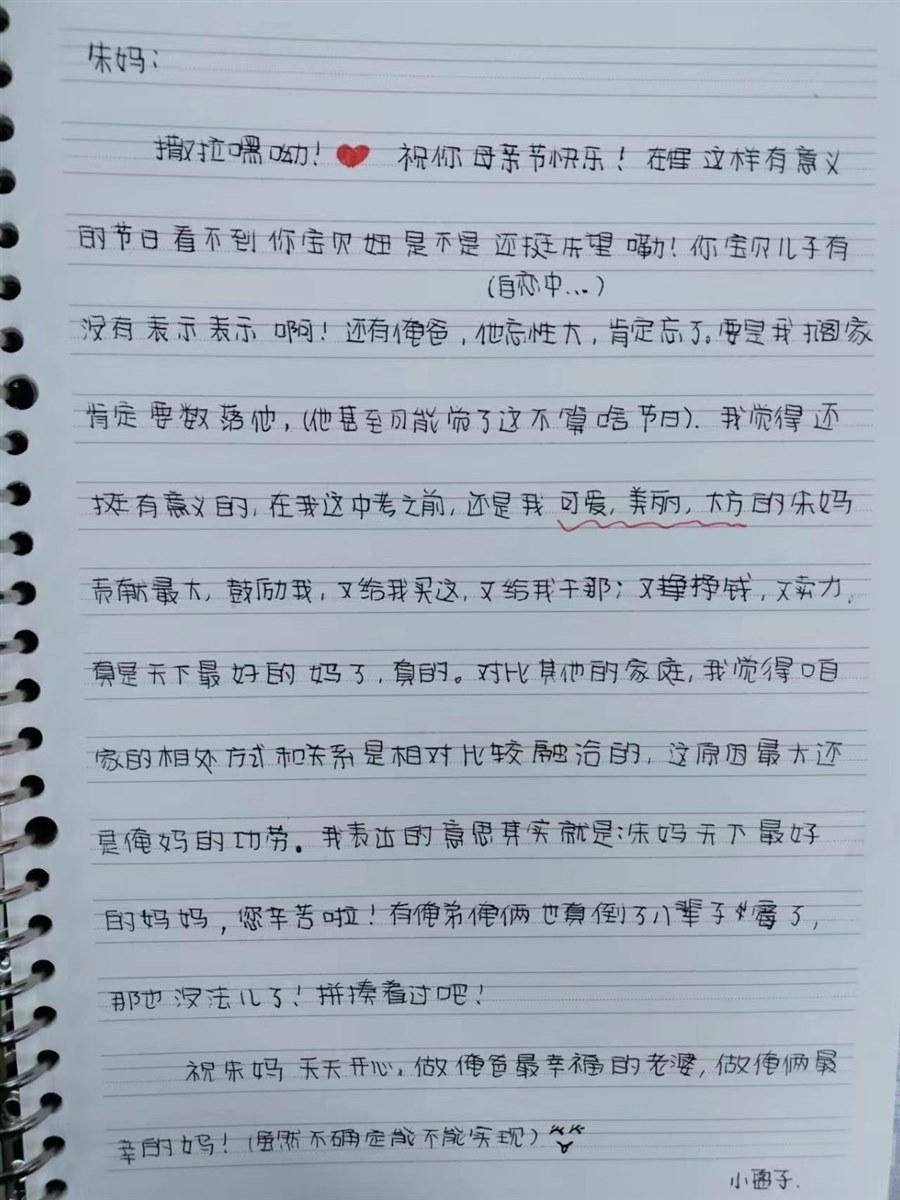 朱妈：
撒拉嘿呦！ 祝你母亲节快乐！在 这样有意义
的节日看不到你宝贝妞是不是还挺失望嘞！你宝贝儿子有
（自恋中...）
没有表示表示啊！还有俺爸，他忘性大，肯定忘了。要是我搁家
肯定要数落他，（他甚至可能觉了这不算啥节日）. 我觉得还
挺有意义的，在我这中考之前，还是我可爱，美丽，大方的朱妈
贡献最大，鼓励我，又给我买这，又给我干那；又挣钱，又卖力，
真是天下最好的妈了，真的。对比其他的家庭，我觉得咱
家的相处方式和关系是相对比较融洽的，这原因最大还
是俺妈的功劳。我表达的意思其实就是：朱妈天下最好
的妈妈，您辛苦啦！有俺弟俺俩也真倒了八辈子霉了，
那也没法儿了！拼揍着过吧！
祝朱妈天天开心，做俺爸最幸福的老婆，做俺俩最
幸的妈！（虽然不确定能不能实现）
小团子.